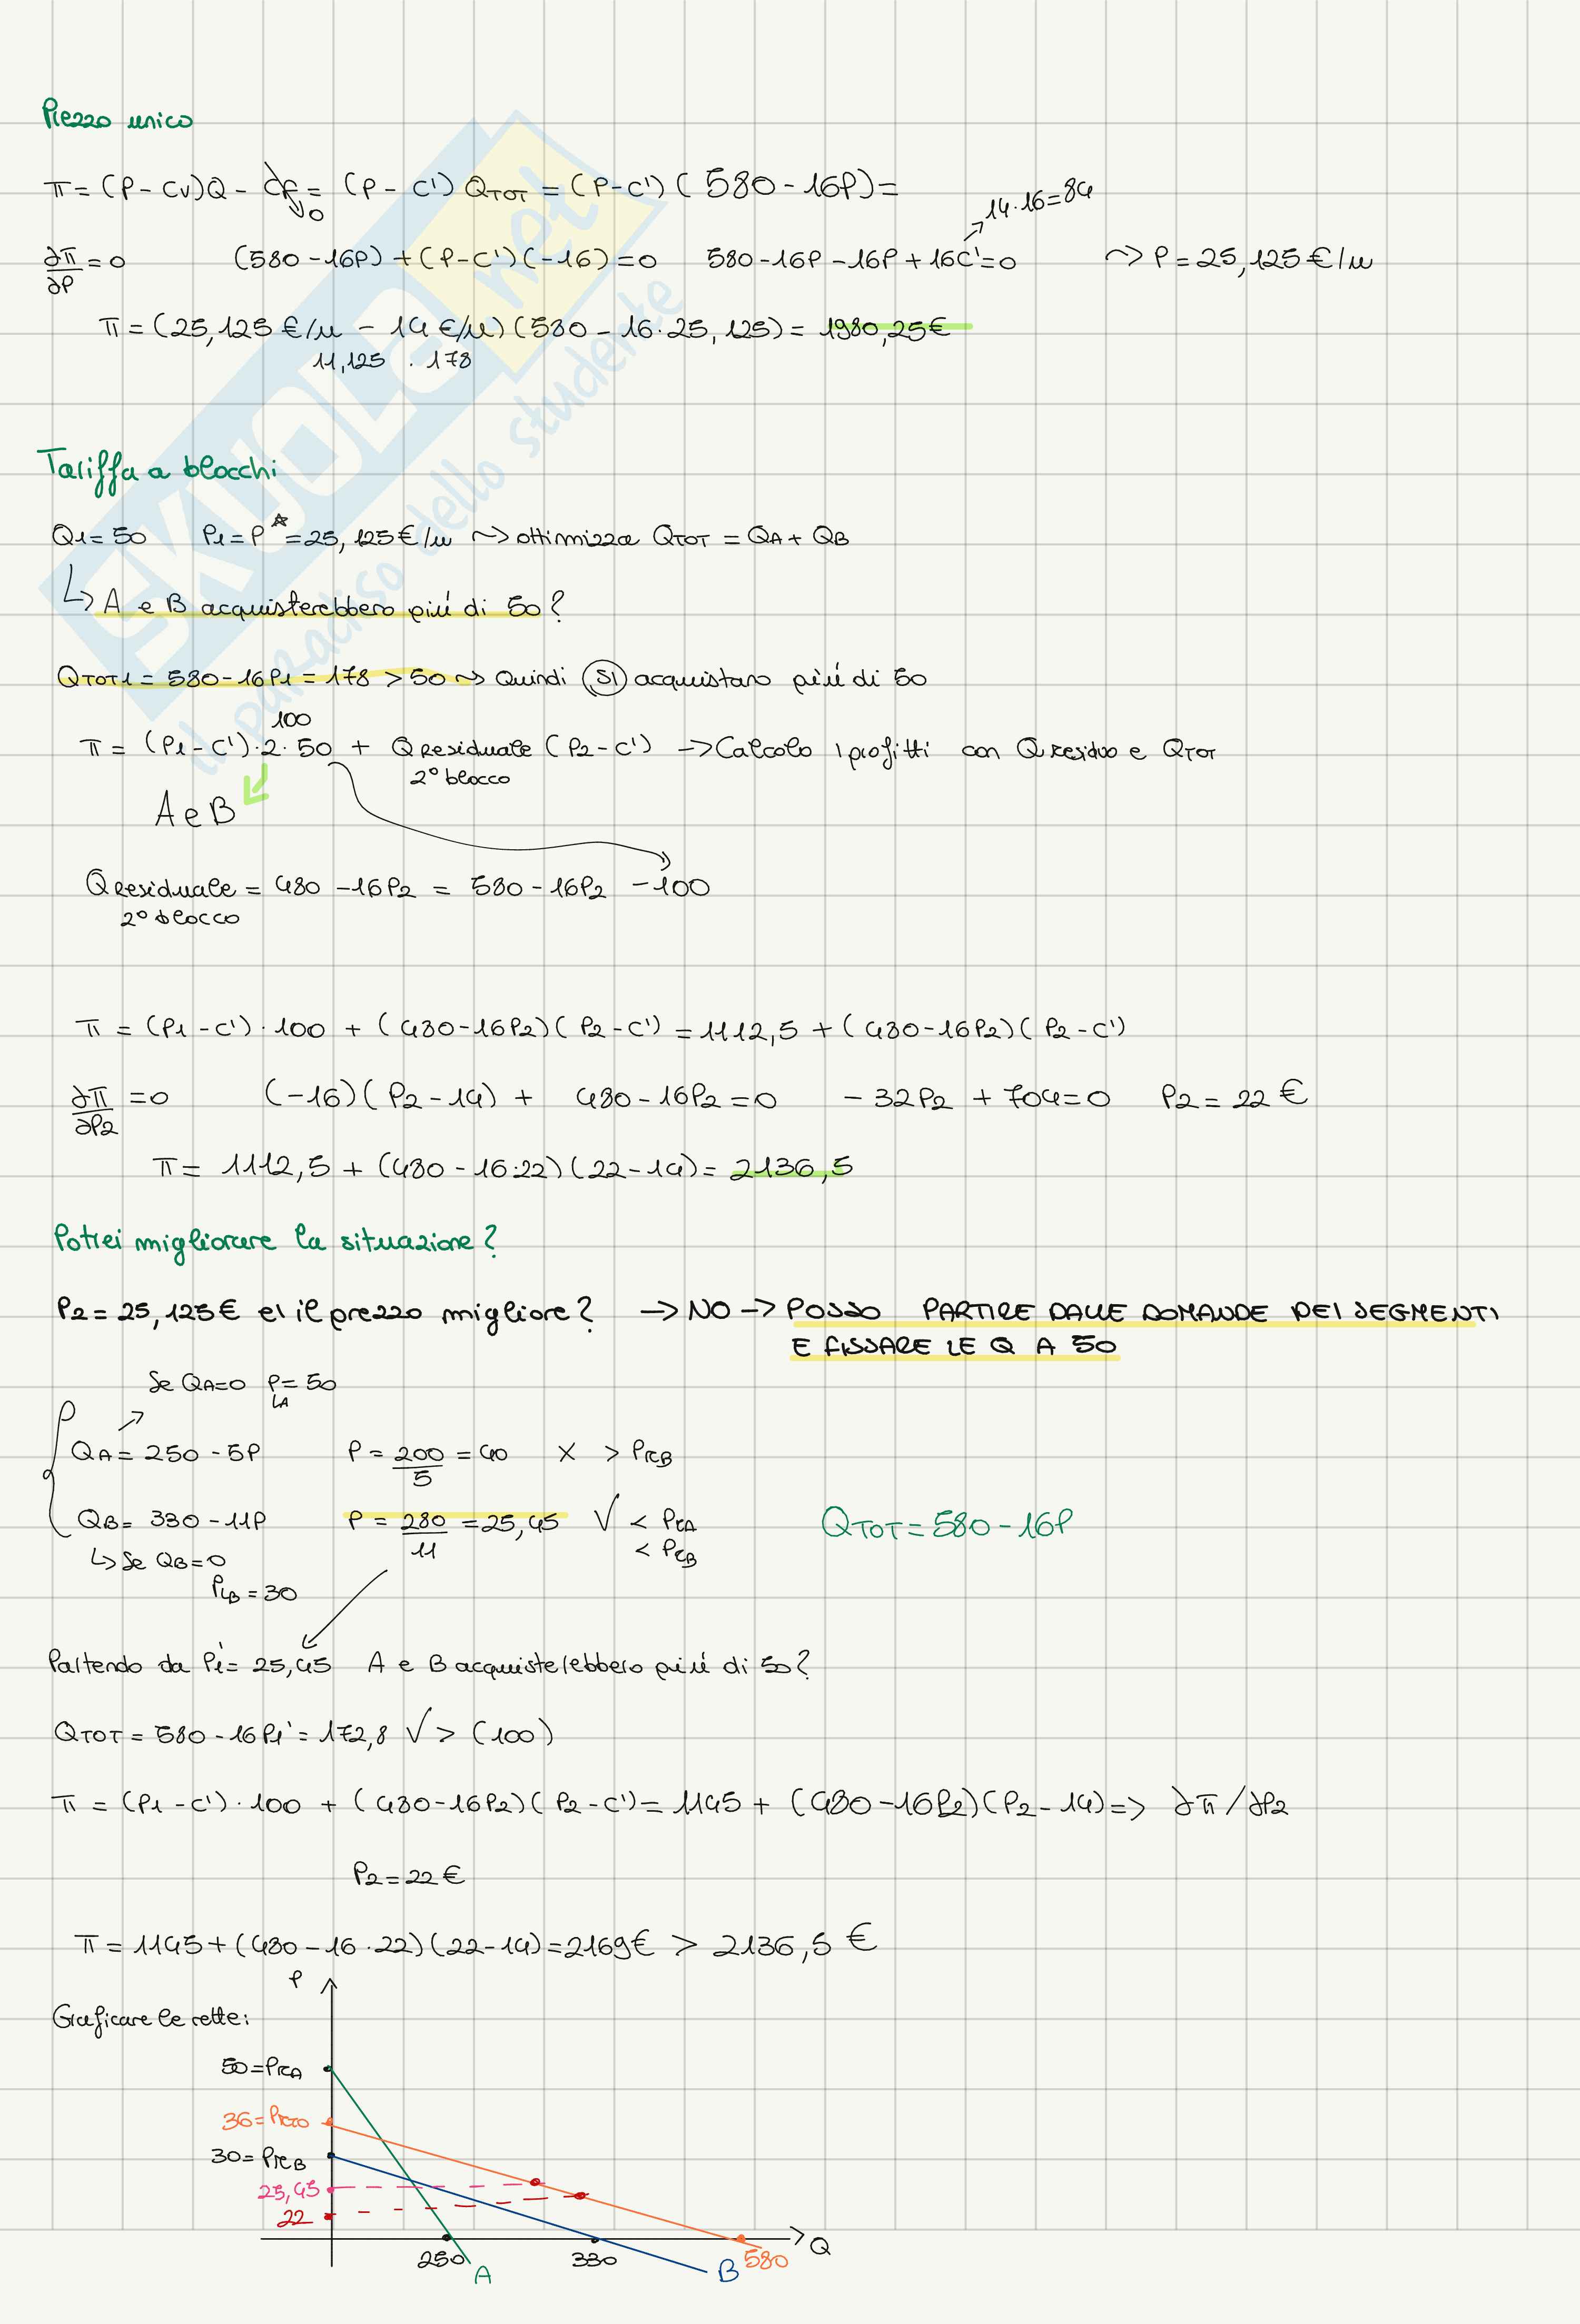 Prezzo unico
π = (P - Cv)Q - CF = (P - C') QTOT = (P-C') ( 580 - 16P) =
↘0
14·16=84
∂π/∂P = 0 (580 - 16P) + (P - C') (-16) = 0 580 - 16P - 16P + 16C' = 0 ~> P = 25,125 €/u
π = (25,125 €/u - 14 €/u) (580 - 16·25,125) = 1980,25€
11,125 . 178
Tariffa a blocchi
Q1 = 50 P1 = P* = 25,125 €/u ~> ottimizza QTOT = QA + QB
↳ A e B acquisterebbero più di 50?
QTOT1 = 580 - 16P1 = 178 > 50 ~> Quindi SI acquistano più di 50
100
π = (P1 - C')·2·50 + Q Residuale (P2 - C') -> Calcolo i profitti con Q residuo e QTOT
2° blocco
A e B
Q Residuale = 480 - 16P2 = 580 - 16P2 - 100
2° blocco
π = (P1 - C')·100 + (480 - 16P2) (P2 - C') = 1112,5 + (480 - 16P2) (P2 - C')
∂π/∂P2 = 0 (-16) (P2 - 14) + 480 - 16P2 = 0 - 32P2 + 704 = 0 P2 = 22 €
π = 1112,5 + (480 - 16·22) (22 - 14) = 2136,5
Potrei migliorare la situazione?
P2 = 25,125€ è il prezzo migliore? -> NO -> POSSO PARTIRE DALLE DOMANDE DEI SEGMENTI
E FISSARE LE Q A 50
Se QA=0 P=50
LA
QA = 250 - 5P P = 200/5 = 40 X > PrB
QB = 330 - 11P P = 280/11 = 25,45 √ < PrA
< PrB
QTOT = 580 - 16P
↳ Se QB=0
PLB = 30
Partendo da P1' = 25,45 A e B acquisterebbero più di 50?
QTOT = 580 - 16P1' = 172,8 √ > (100)
π = (P1 - C')·100 + (480 - 16P2) (P2 - C') = 1145 + (480 - 16P2) (P2 - 14) => ∂π/∂P2
P2 = 22 €
π = 1145 + (480 - 16·22) (22 - 14) = 2169€ > 2136,5 €
P
Graficare le rette:
50 = PrA
36 = Prtot
30 = PrB
25,45
22
Q
250
330
580
A
B
SKUOLA.net
il paradiso dello studente